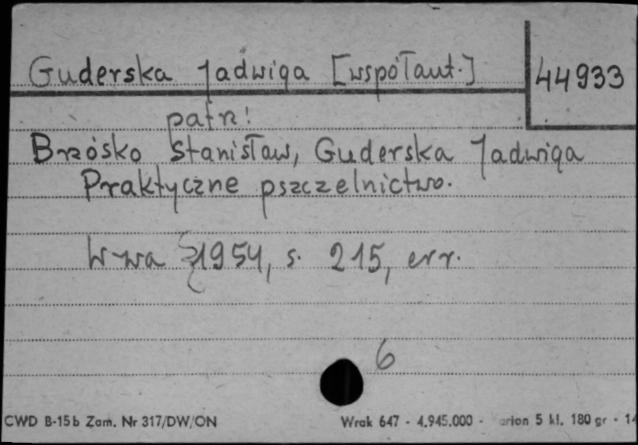 Guderska Jadwiga [współaut.]
44933
patrz!
Brzósko Stanisław, Guderska Jadwiga
Praktyczne pszczelnictwo.
W-wa 1954, s. 215, err.
6
CWD B-15b Zam. Nr 317/DW/ON
Wrak 647 - 4.945.000 - 5 kl. 180 gr - 14